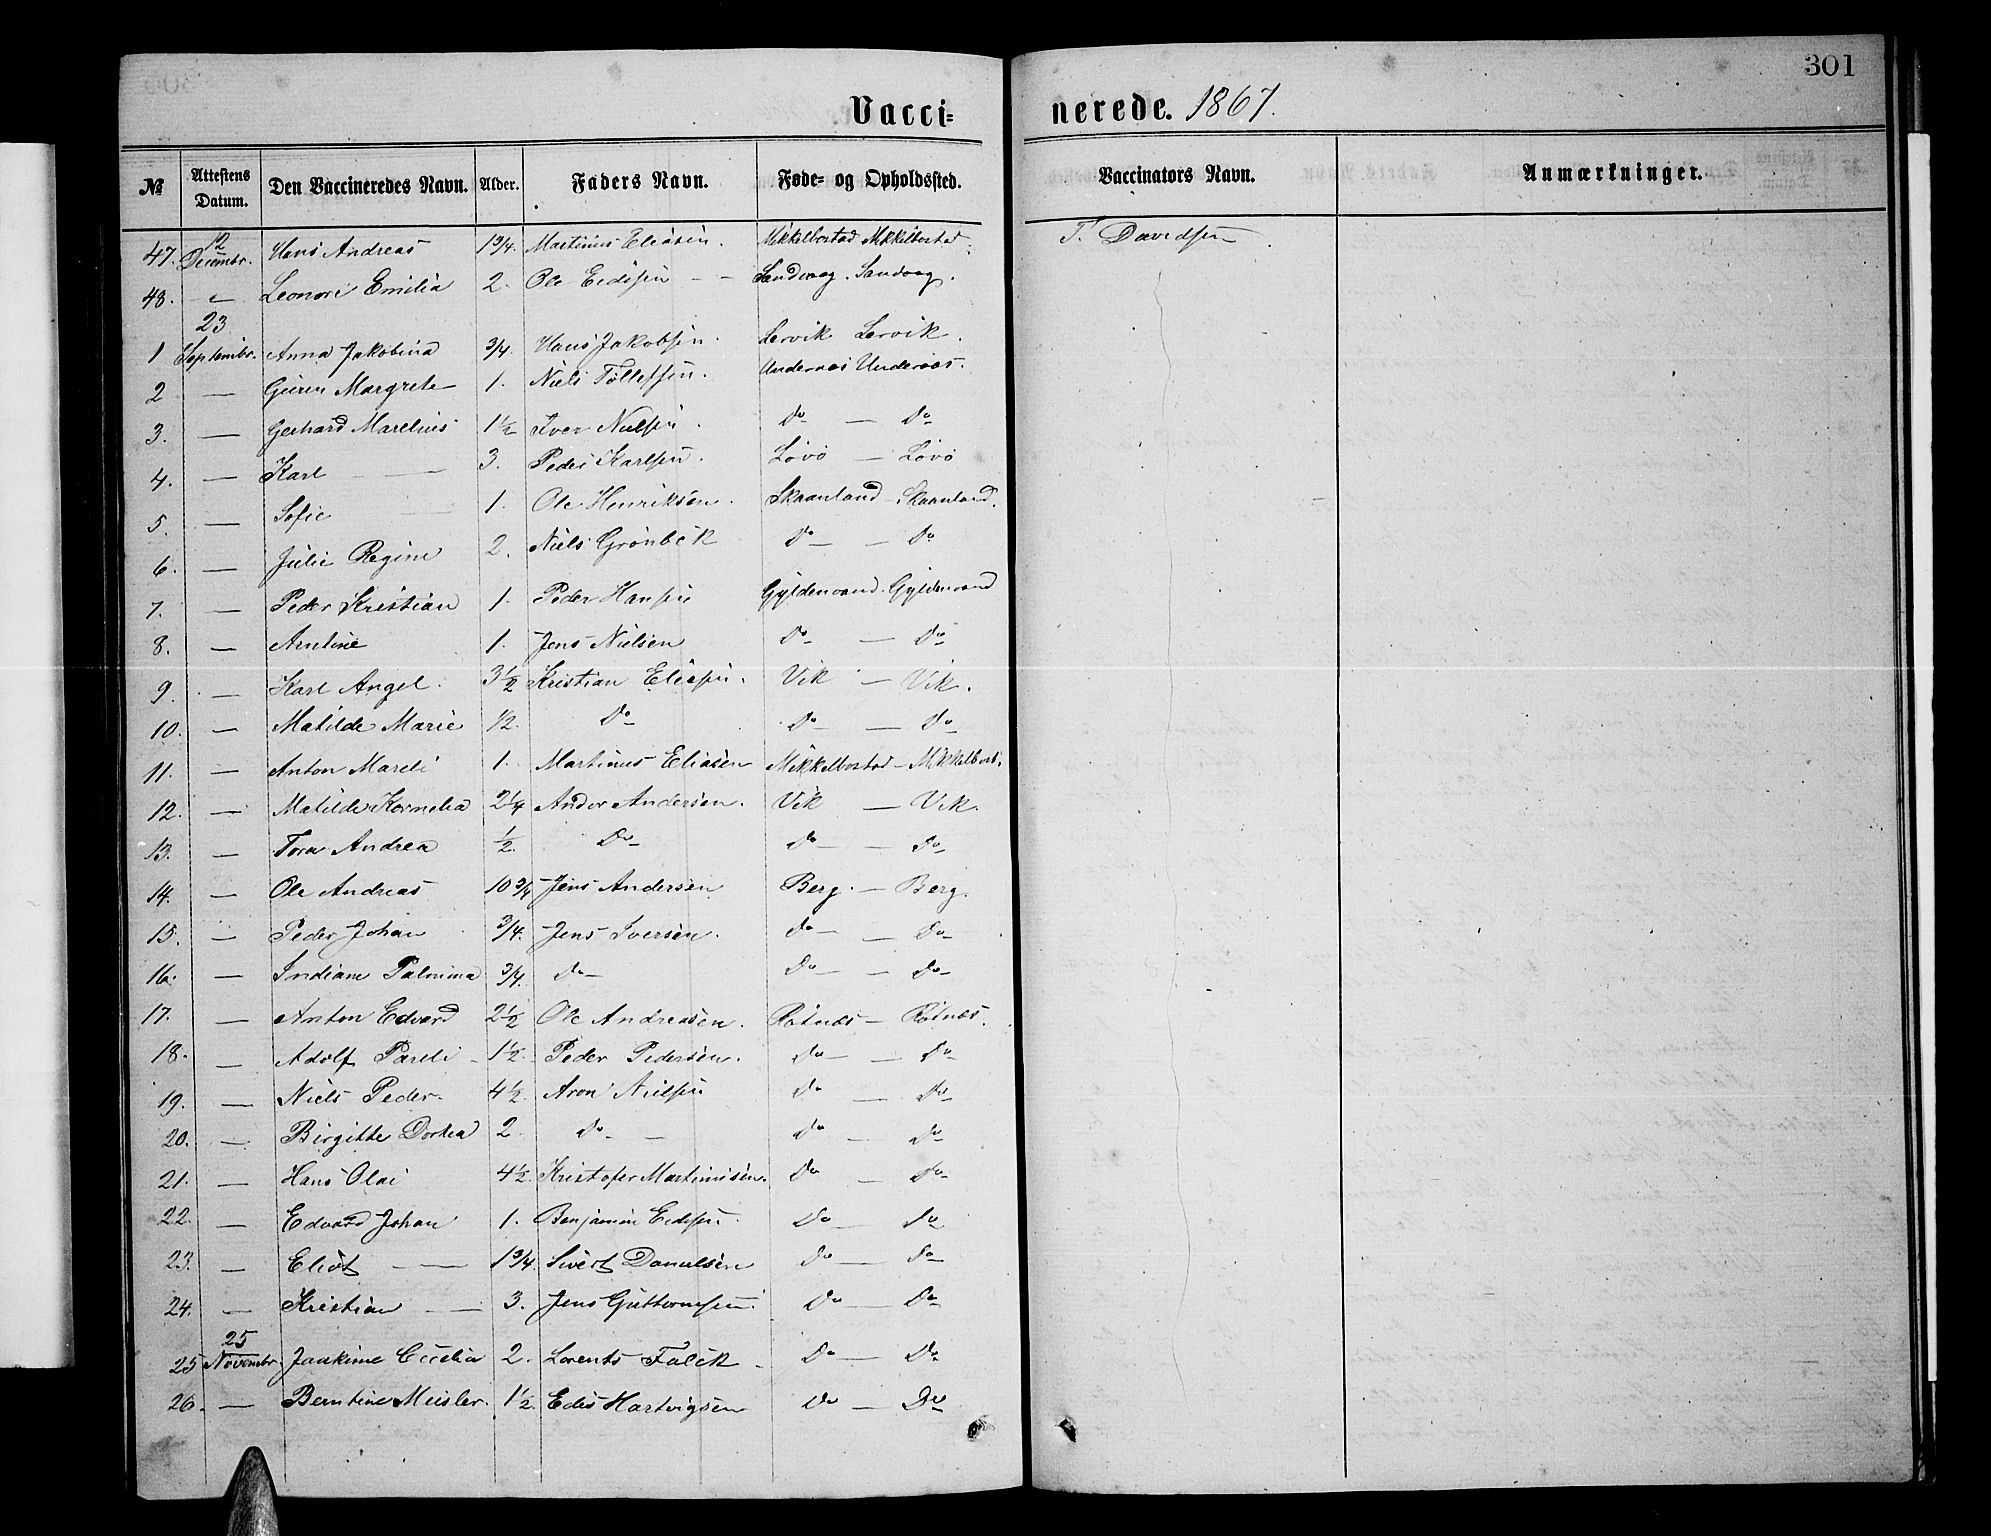 301
Vacci= nerede. 1867.
№ Attestens Datum. Den Vaccineredes Navn. Alder. Faders Navn. Føde- og Opholdssted. Vaccinators Navn. Anmærkninger.
47. 12 Decembr. Hans Andreas 1 3/4. Martinus Eliasen. Mikkelbostad Mikkelbostad. T. Davidsen
48. " Leonore Emilia 2. Ole Edisen - - Sandvag. Sandvag.
1 23 Septembr. Anna Jakobina 3/4. Hans Jakobsen. Lervik Lervik.
2 — Guren Margrete 1. Niels Tollefsen. Undernæs Undernæs.
3. — Gerhard Marelius 1 1/2 Iver Nielsen. Do — Do
4. — Karl — 3. Peder Karlsen. Løvø — Løvø
5. — Sofie 1. Ole Henriksen. Skaanland - Skaanland.
6. — Julie Regine 2. Niels Grønbek Do - Do
7. — Peder Kristian 1. Peder Hansen Gyldenvand. Gyldenvand
8. — Antine 1. Jens Nielsen Do — Do
9 — Karl Angel. 3 1/2 Kristian Eliasen. Vik — Vik.
10. — Matilde Marie 1/2. Do Do — Do
11. — Anton Mareli 1. Martinus Eliasen Mikkelbostad - Mikkelbost.
12. — Matilde Kornelia 2 1/4 Andor Andersen. Vik — Vik.
13. — Tora Andrea 1/2. Do Do — Do
14. — Ole Andreas 10 3/4 Jens Andersen Berg. — Berg.
15. — Peder Johan 3/4. Jens Iversen. Do — Do
16. — Indiane Palmina 3/4. Do Do — Do
17. — Anton Edvard 2 1/2 Ole Andreasen. Rotnæs — Rotnæs.
18. — Adolf Pareli 1 1/2. Peder Pedersen. Do — Do
19. — Niels Peder. 4 1/2 Aron Nielsen Do — Do
20. — Birgitte Dortea 2. Do Do — Do
21. — Hans Olai 4 1/2. Kristofer Martinusen. Do Do
22. — Edvard Johan 1. Benjamin Edisen. Do — Do
23. — Eliot — 1 3/4. Sivert Danielsen Do — Do
24. — Kristian — 3. Jens Guttormsen. Do — Do
25 25 Novembr. Jaakime Cecelia 2. Lorents Falck Do — Do
26. — Berntine Meisler. 1 1/2. Edis Hartvigsen Do — Do